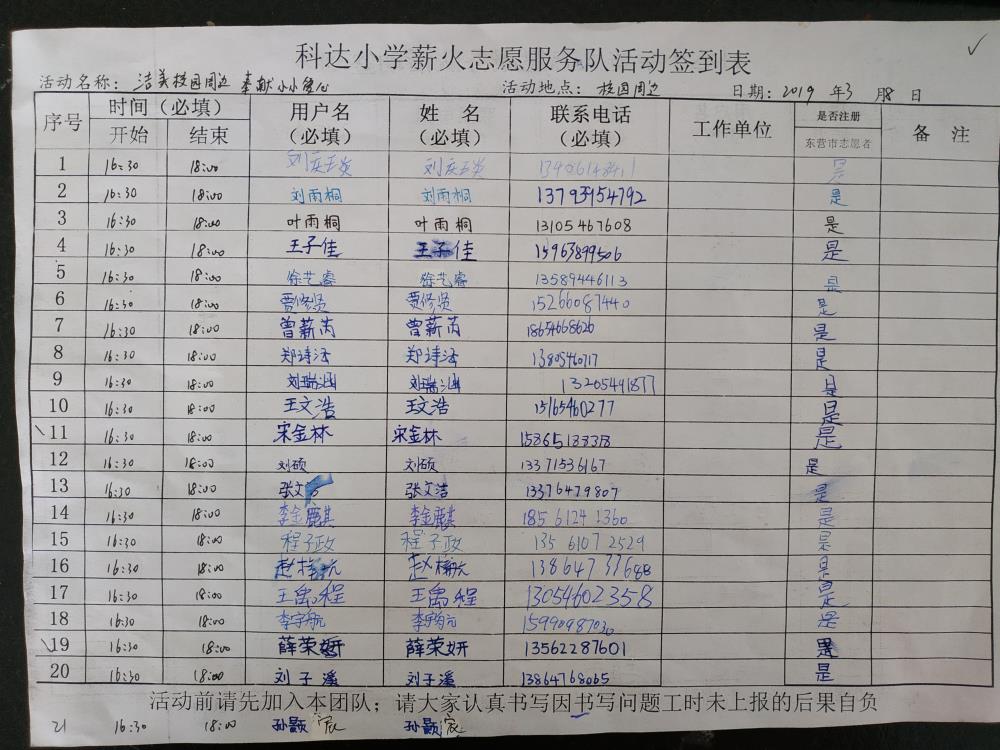 科达小学薪火志愿服务队活动签到表
活动名称： 洁美校园周边 奉献小小爱心 活动地点： 校园周边 日期：2019 年3 月8 日
序号 时间（必填） 开始 结束 用户名（必填） 姓 名（必填） 联系电话（必填） 工作单位 是否注册 东营市志愿者 备 注
1 16:30 18:00 是
2 16:30 18:00 刘雨桐 刘雨桐 13793954792 是
3 16:30 18:00 叶雨桐 叶雨桐 13105467608 是
4 16:30 18:00 王子佳 王子佳 15963899506 是
5 16:30 18:00 徐艺睿 徐艺睿 13589446113 是
6 16:30 18:00 贾修贤 贾修贤 15266087440 是
7 16:30 18:00 曾薪芮 曾薪芮 18654668626 是
8 16:30 18:00 郑诗涵 郑诗涵 是
9 16:30 18:00 刘瑞涵 刘瑞涵 13205491877 是
10 16:30 18:00 王文浩 王文浩 15165460277 是
11 16:30 18:00 宋金林 宋金林 是
12 16:30 18:00 刘硕 刘硕 13371536167 是
13 16:30 18:00 张文洁 13376479807 是
14 16:30 18:00 李金麒 李金麒 185 6124 1360 是
15 16:30 18:00 程子政 程子政 135 6107 2529 是
16 16:30 18:00 是
17 16:30 18:00 王禹程 王禹程 13054602358 是
18 16:30 18:00 15990987030 是
19 16:30 18:00 薛荣妍 薛荣妍 13562287601 是
20 16:30 18:00 刘子溪 刘子溪 13864768065 是
活动前请先加入本团队；请大家认真书写因书写问题工时未上报的后果自负
21 16:30 18:00 孙颢宸 孙颢宸